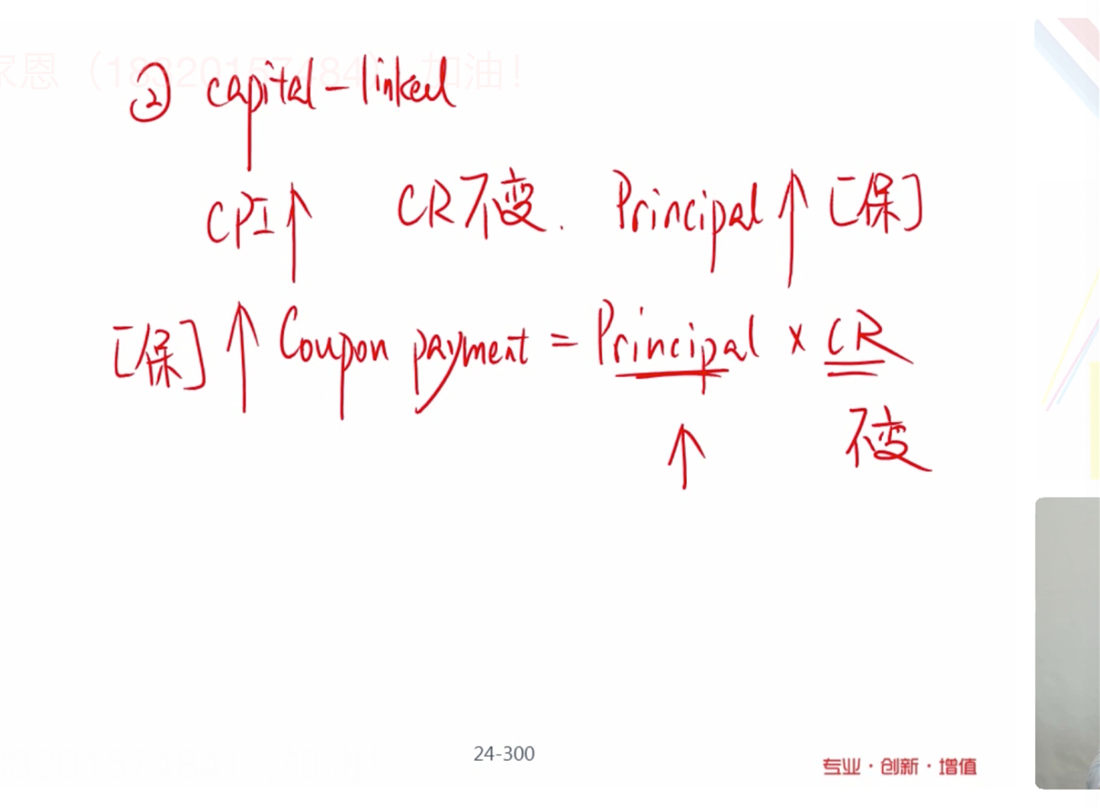 家恩（18320157484）加油！
② capital-linked
CPI↑ CR不变. Principal↑［保］
［保］↑ Coupon payment = Principal × CR
↑ 不变
24-300
专业·创新·增值